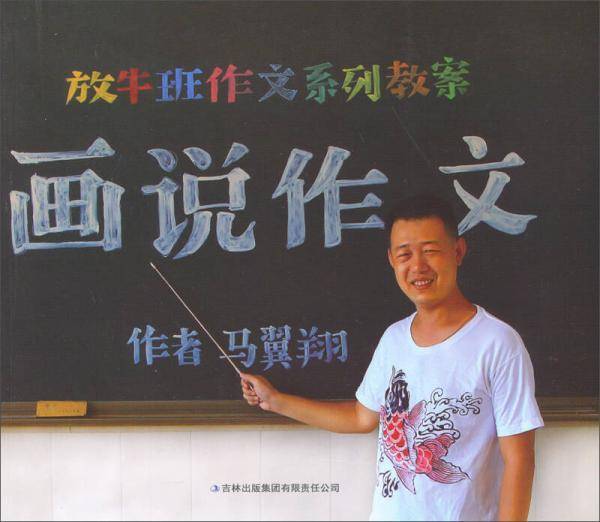 放牛班作文系列教案
画说作文
作者 马翼翔
吉林出版集团有限责任公司